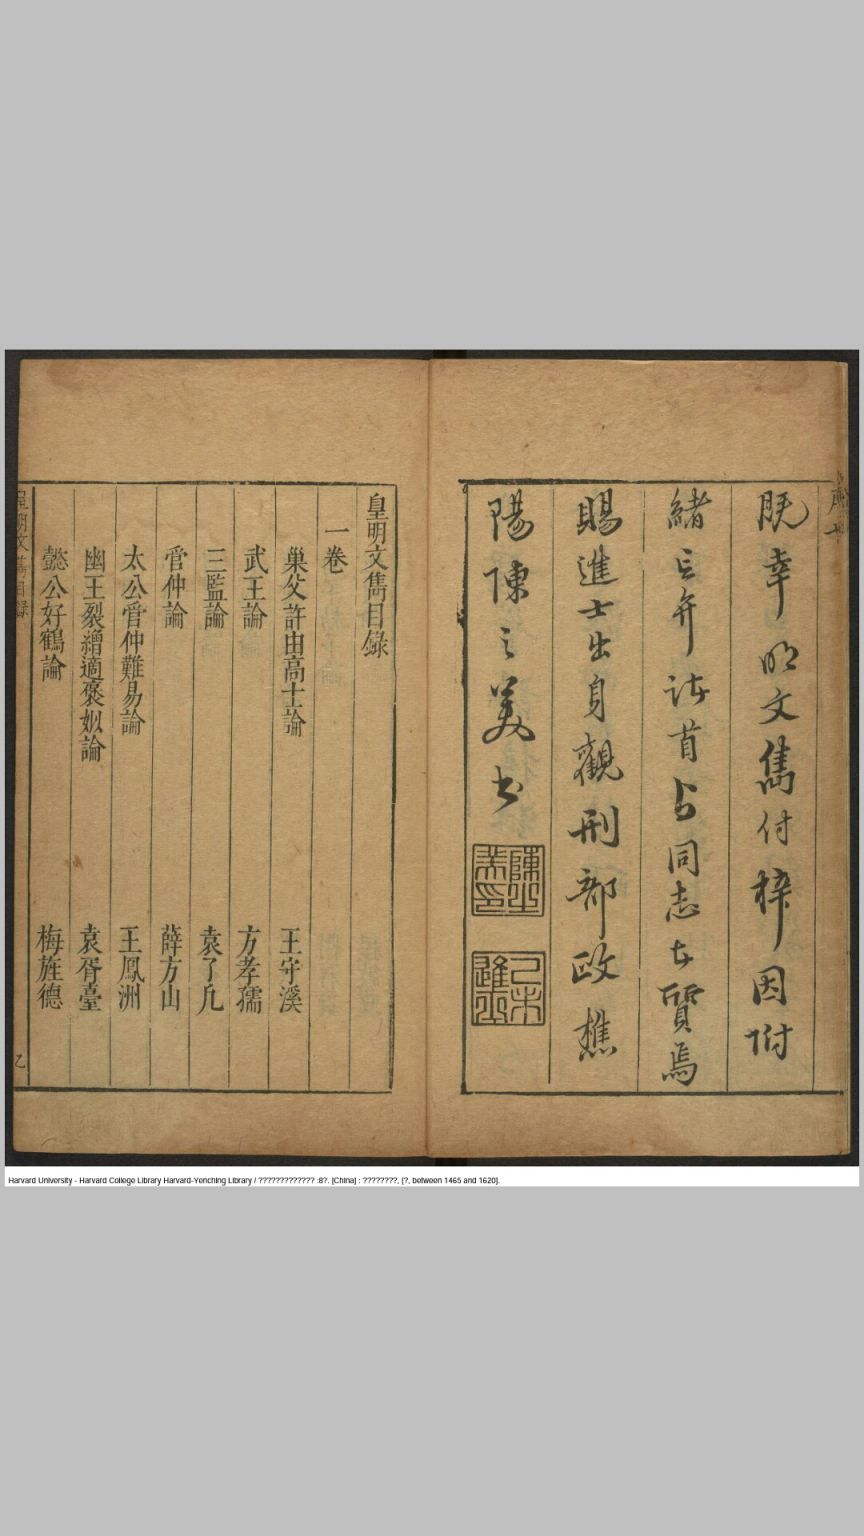 既幸明文雋付梓因附
緒言弁諸首与同志者質焉
賜進士出身觀刑部政樵
陽陳之美書
陳之美印
己未進士
皇明文雋目錄
一卷
巢父許由高士論 王守溪
武王論 方孝孺
三監論 袁了凡
管仲論 薛方山
太公管仲難易論 王鳳洲
幽王裂繒適褒姒論 袁胥臺
懿公好鶴論 梅旌德
皇明文雋目錄
乙
Harvard University - Harvard College Library Harvard-Yenching Library / ????????????? :8?. [China] : ????????, [?, between 1465 and 1620].